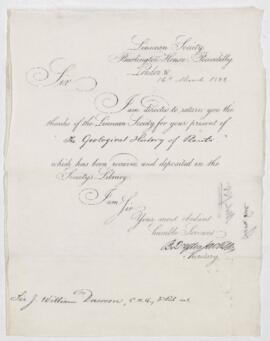 Linnean Society
Burlington House Piccadilly
London W.
16th March 1888
Sir
I am directed to return you the
thanks of the Linnean Society for your present of
"The Geological History of Plants"
which has been received and deposited in the
Society's Library.
I am Sir
Your most obedient
humble Servant
Secretary
Sir J. William Dawson, C.M.G.